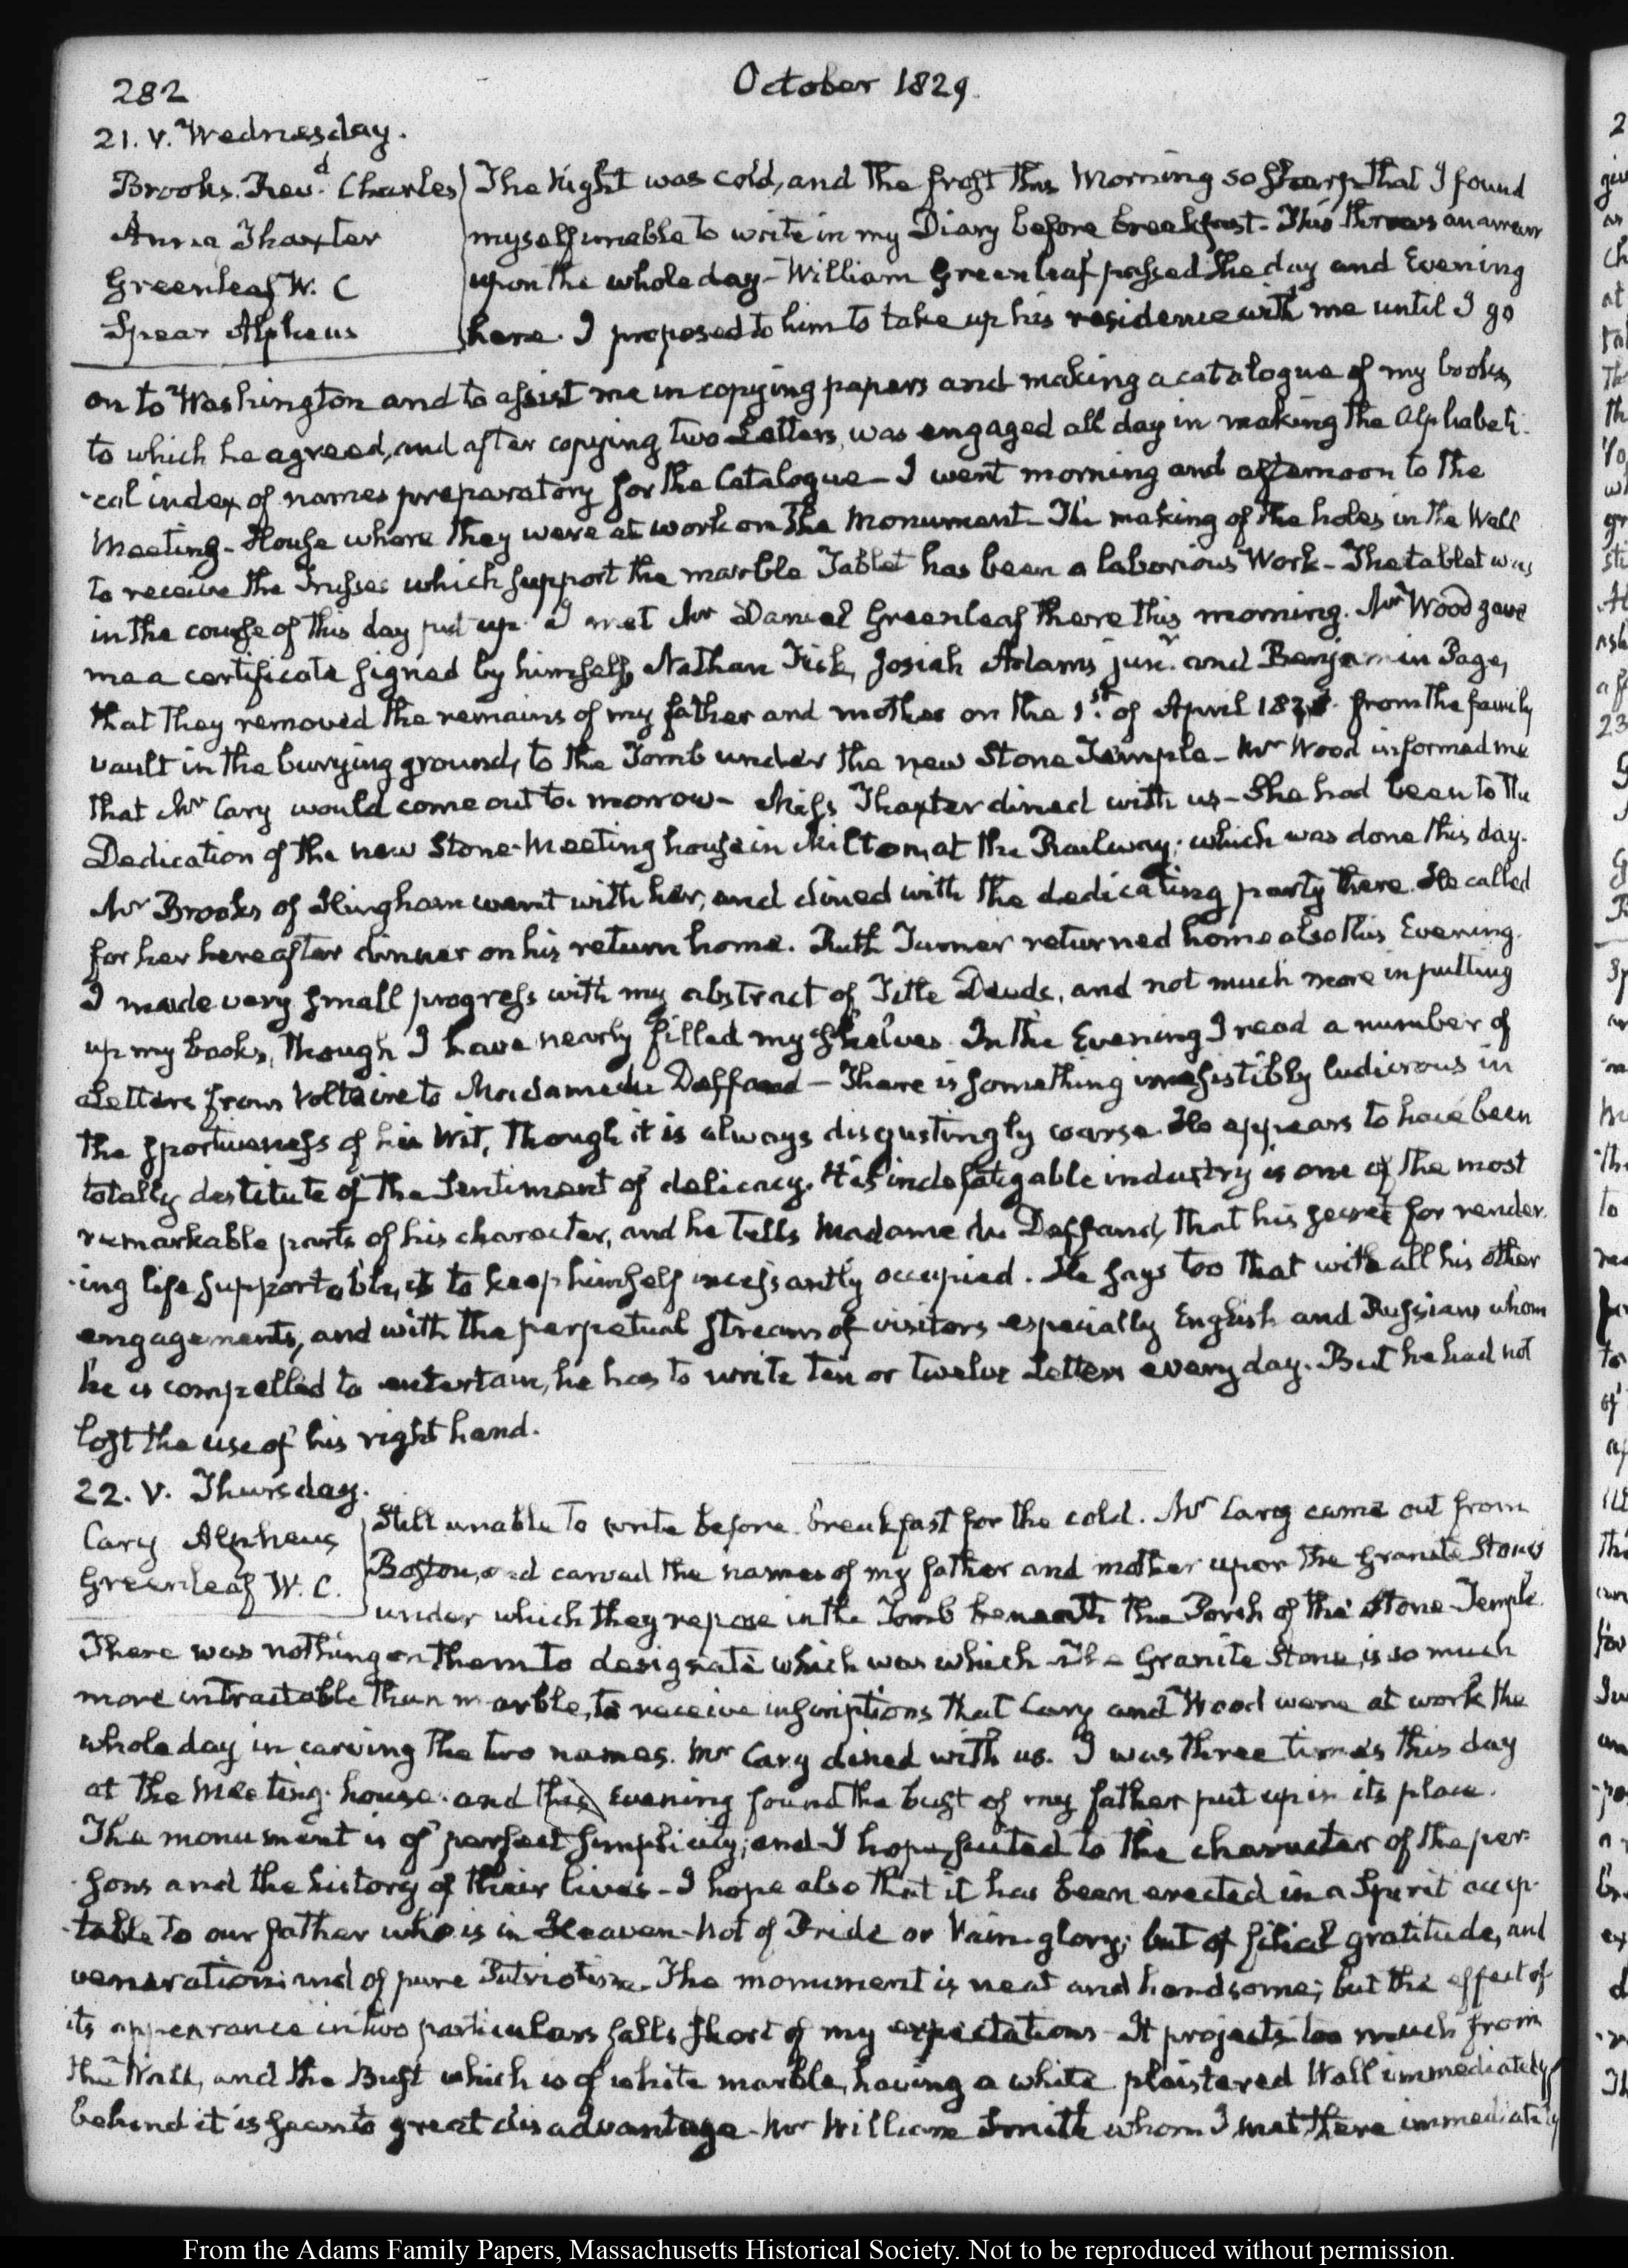 282
October 1829.
21. V. Wednesday.
Brooks. Revd. Charles
Anna Thaxter
Greenleaf W. C
Spear Alpheus
The Night was cold, and the frost this Morning so sharp that I found
myself unable to write in my Diary before breakfast - This throws an arrear
upon the whole day - William Greenleaf passed the day and Evening
here. I proposed to him to take up his residence with me until I go
on to Washington and to assist me in copying papers and making a catalogue of my books,
to which he agreed, and after copying two Letters, was engaged all day in making the Alphabeti-
-cal index of names preparatory for the Catalogue - I went morning and afternoon to the
Meeting-House where they were at work on the Monument - The making of the holes in the Wall
to receive the Trusses which support the marble Tablet has been a laborious Work - The tablet was
in the course of this day put up. I met Mr Daniel Greenleaf there this morning. Mr Wood gave
me a certificate signed by himself, Nathan Fisk, Josiah Adams junr. and Benjamin Page,
that they removed the remains of my father and mother on the 1st. of April from the family
vault in the burying ground, to the Tomb under the new Stone Temple - Mr Wood informed me
that Mr Cary would come out to-morrow - Miss Thaxter dined with us - She had been to the
Dedication of the new Stone-Meeting house in Milton, at the Railway; which was done this day.
Mr Brooks of Hingham went with her, and dined with the dedicating party there. He called
for her here after dinner on his return home. Ruth Turner returned home also this Evening.
I made very small progress with my abstract of Title Deeds, and not much more in putting
up my books, though I have nearly filled my shelves. In the Evening I read a number of
Letters from Voltaire to Madame du Deffand - There is something irresistibly ludicrous in
the sportiveness of his Wit, though it is always disgustingly coarse. He appears to have been
totally destitute of the Sentiment of delicacy. His indefatigable industry is one of the most
remarkable parts of his character, and he tells Madame du Deffand, that his secret for render-
-ing life supportable, is to keep himself incessantly occupied. He says too that with all his other
engagements, and with the perpetual stream of visitors especially English and Russians whom
he is compelled to entertain, he has to write ten or twelve Letters every day. But he had not
lost the use of his right hand.
22. V. Thursday.
Cary Alpheus
Greenleaf W. C.
Still unable to write before breakfast for the cold. Mr Cary came out from
Boston, and carved the names of my father and mother upon the Granite Stones
under which they repose in the Tomb beneath the Porch of the Stone Temple.
There was nothing on them to designate which was which - The Granite Stone, is so much
more intractable than marble, to receive inscriptions that Cary and Wood were at work the
whole day in carving the two names. Mr Cary dined with us. I was three times this day
at the Meeting-house - and this Evening found the bust of my father put up in its place.
The monument is of perfect simplicity; and I hope suited to the character of the per-
-sons and the history of their lives - I hope also that it has been erected in a Spirit accep-
-table to our father who is in Heaven - Not of Pride or Vain-glory; but of filial gratitude, and
veneration: and of pure Patriotism. The monument is neat and handsome; but the effect of
its appearance in two particulars falls short of my expectations - It projects too much from
the Wall, and the Bust which is of white marble, having a white plaistered Wall immediately
behind it is seen to great disadvantage - Mr William Smith whom I met there immediately
From the Adams Family Papers, Massachusetts Historical Society. Not to be reproduced without permission.